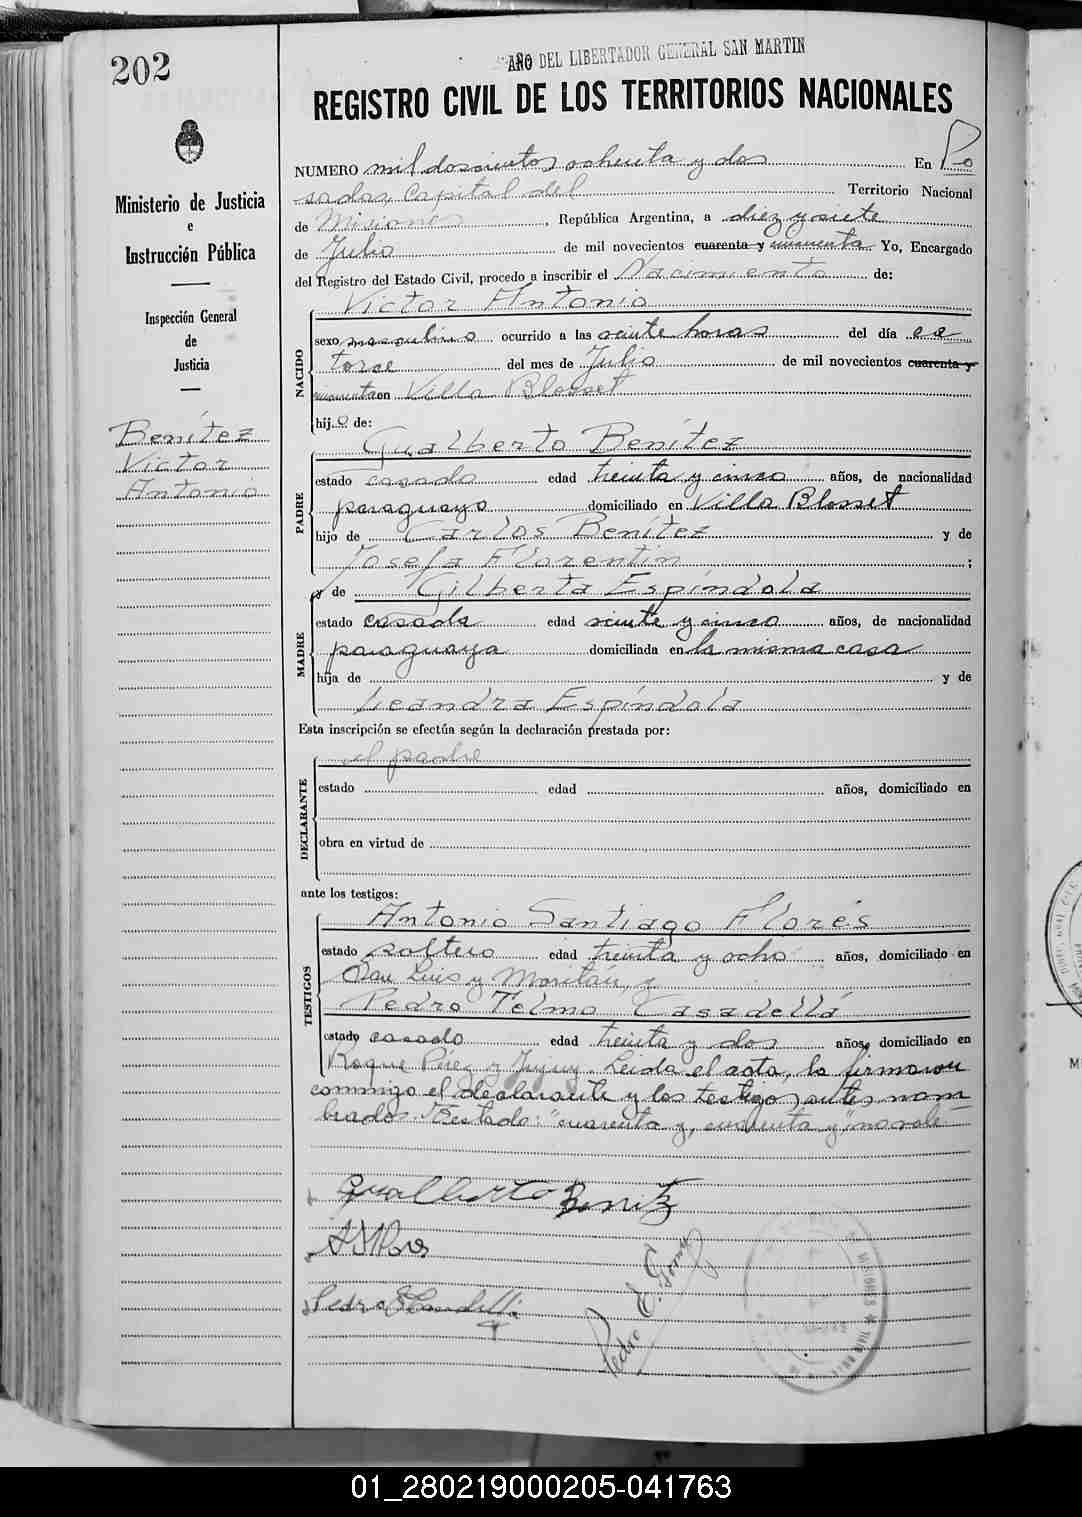 202
AÑO DEL LIBERTADOR GENERAL SAN MARTIN
REGISTRO CIVIL DE LOS TERRITORIOS NACIONALES
Ministerio de Justicia
e
Instrucción Pública
Inspección General
de
Justicia
Benítez
Victor
Antonio
NUMERO mil doscientos ochenta y dos En Po
sadas Capital del Territorio Nacional
de Misiones, República Argentina, a diez y siete
de Julio de mil novecientos cuarenta y cincuenta Yo, Encargado
del Registro del Estado Civil, procedo a inscribir el Nacimiento de:
Victor Antonio
NACIDO
sexo masculino ocurrido a las veinte horas del día ca
torce del mes de Julio de mil novecientos cuarenta y
cincuenta en Villa Blosset
hij o de:
Gualberto Benítez
PADRE
estado casado edad treinta y cinco años, de nacionalidad
paraguayo domiciliado en Villa Blosset
hijo de Carlos Benítez y de
Josefa Florentin ;
y de Gilberta Espíndola
MADRE
estado casada edad veinte y cinco años, de nacionalidad
paraguaya domiciliada en la misma casa
hija de y de
Leandra Espíndola
Esta inscripción se efectúa según la declaración prestada por:
el padre
DECLARANTE
estado edad años, domiciliado en
obra en virtud de
ante los testigos:
Antonio Santiago Flores
TESTIGOS
estado soltero edad treinta y ocho años, domiciliado en
San Luis y
Pedro Telmo Casadellá
estado casado edad treinta y dos años, domiciliado en
Roque Pérez y Jujuy. Leida el acta, la firmaron
conmigo el declarante y los testigos antes nom
brados. Testado: "cuarenta y, cuarenta y", no vale
Gualberto Benitz
Pedro
Pedro E. Gomez
01_280219000205-041763